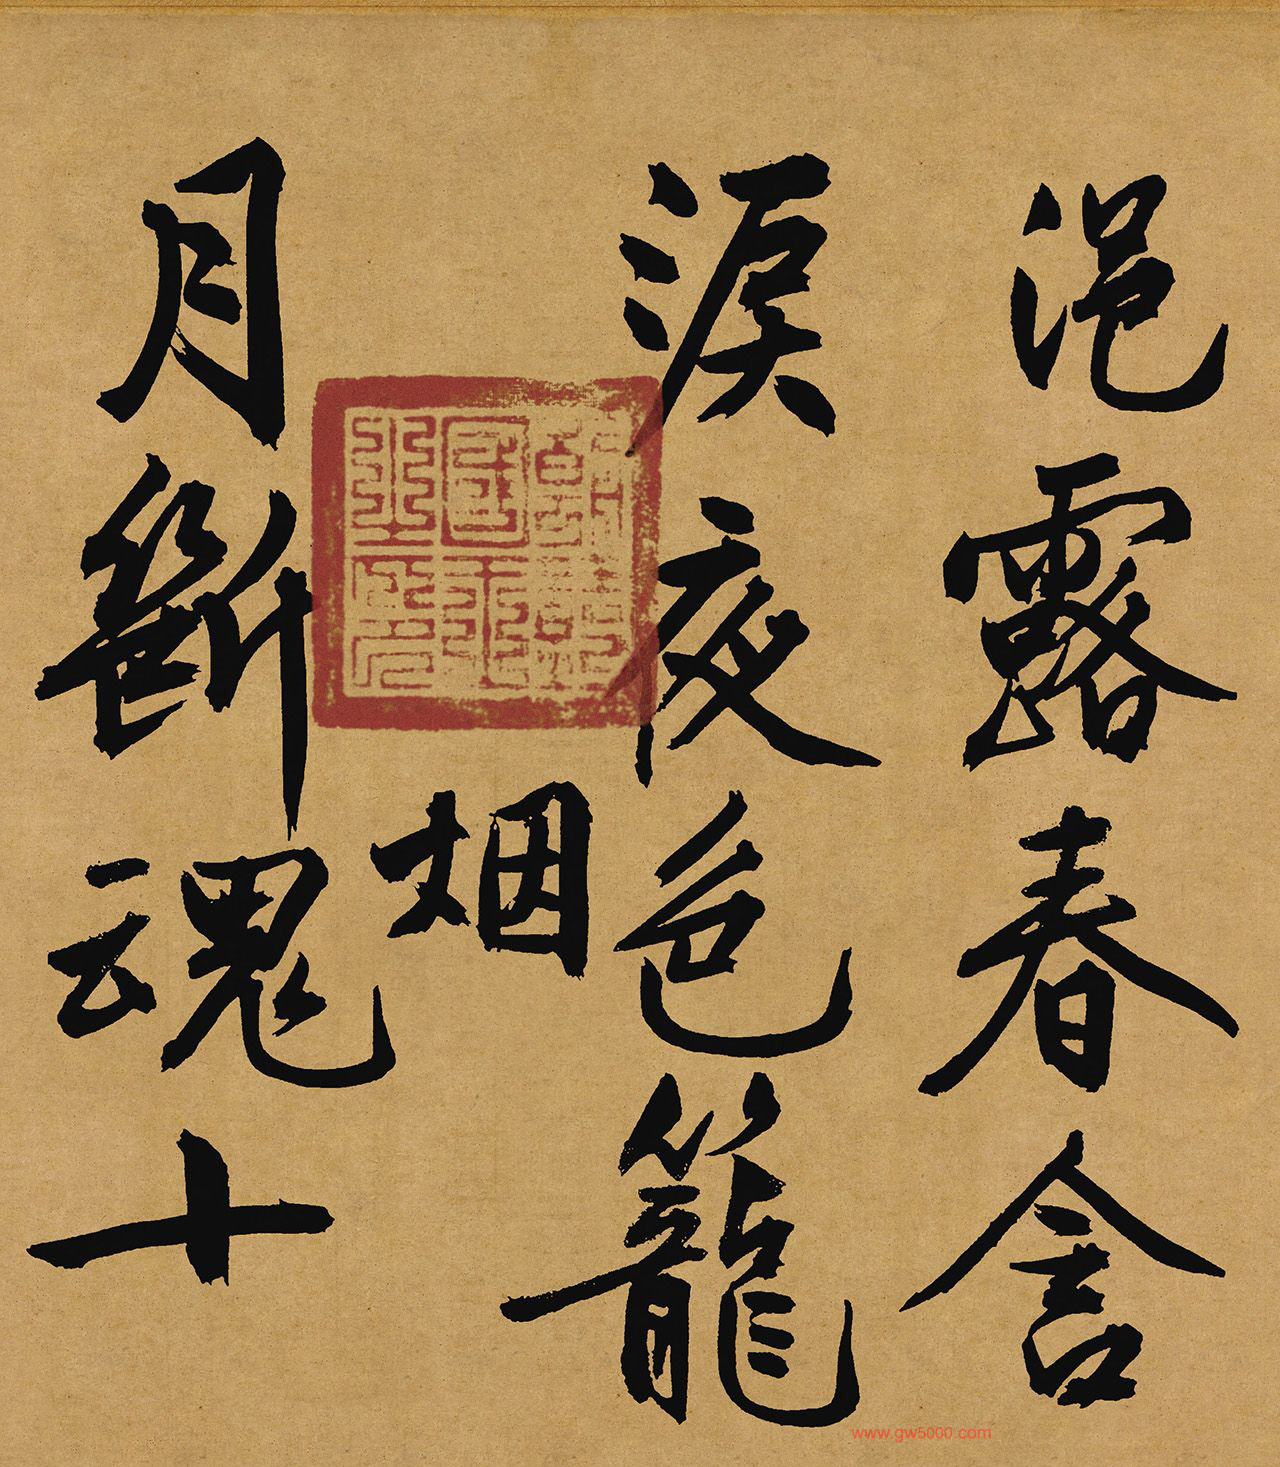 浥露春含
淚夜色籠
烟
月斷魂十
www.gw5000.com